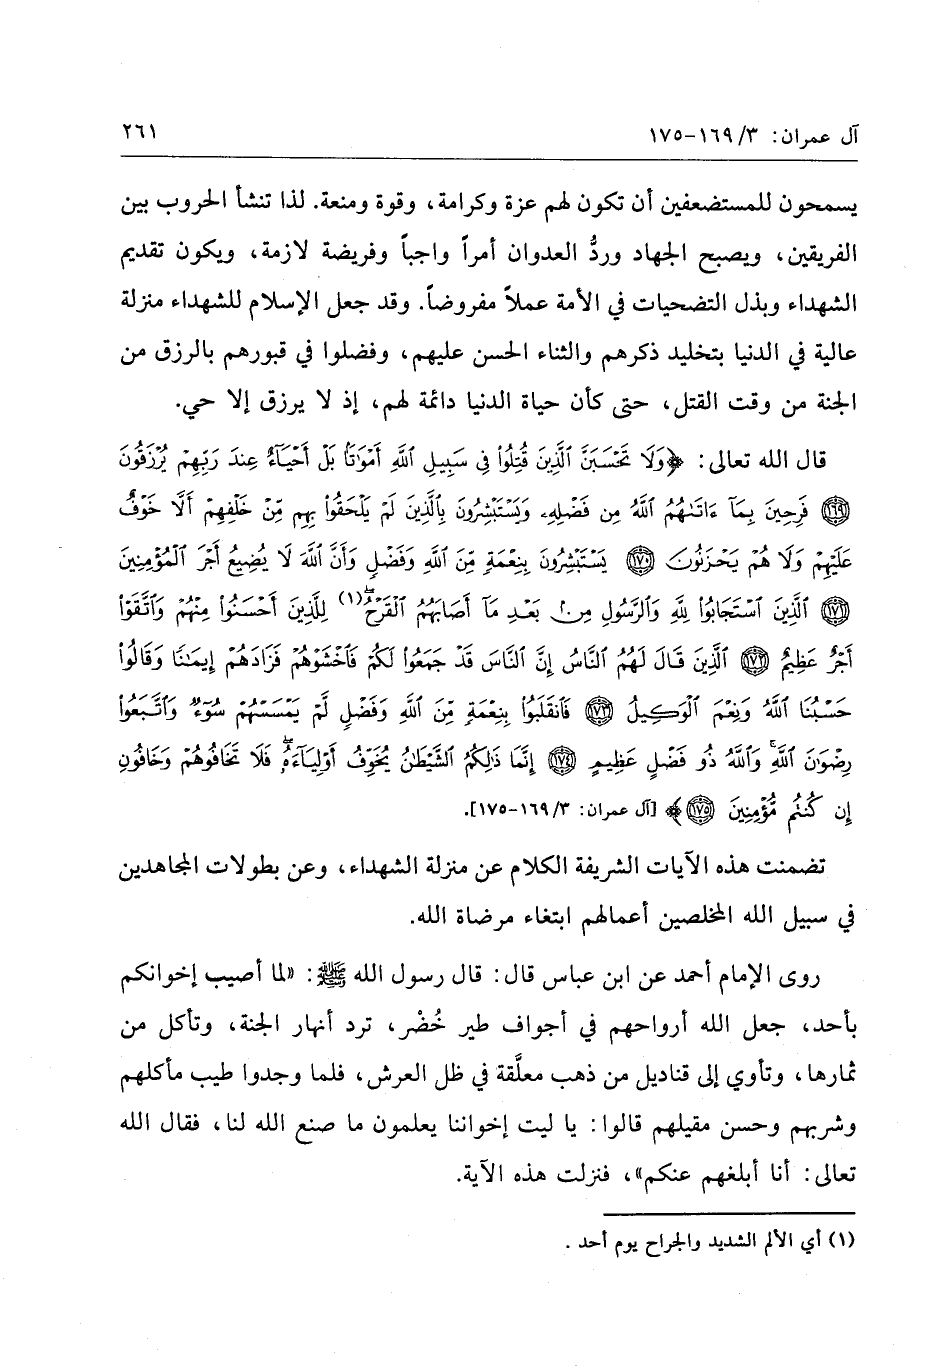 آل عمران: ٣/ ١٦٩-١٧٥ ٢٦١
يسمحون للمستضعفين أن تكون لهم عزة وكرامة، وقوة ومنعة. لذا تنشأ الحروب بين
الفريقين، ويصبح الجهاد وردُّ العدوان أمراً واجباً وفريضة لازمة، ويكون تقديم
الشهداء وبذل التضحيات في الأمة عملاً مفروضاً. وقد جعل الإسلام للشهداء منزلة
عالية في الدنيا بتخليد ذكرهم والثناء الحسن عليهم، وفضلوا في قبورهم بالرزق من
الجنة من وقت القتل، حتى كأن حياة الدنيا دائمة لهم، إذ لا يرزق إلا حي.
قال الله تعالى: ﴿وَلَا تَحْسَبَنَّ ٱلَّذِينَ قُتِلُوا۟ فِى سَبِيلِ ٱللَّهِ أَمْوَٰتًۢا بَلْ أَحْيَآءٌ عِندَ رَبِّهِمْ يُرْزَقُونَ
١٦٩ فَرِحِينَ بِمَآ ءَاتَىٰهُمُ ٱللَّهُ مِن فَضْلِهِۦ وَيَسْتَبْشِرُونَ بِٱلَّذِينَ لَمْ يَلْحَقُوا۟ بِهِم مِّنْ خَلْفِهِمْ أَلَّا خَوْفٌ
عَلَيْهِمْ وَلَا هُمْ يَحْزَنُونَ ١٧٠ يَسْتَبْشِرُونَ بِنِعْمَةٍ مِّنَ ٱللَّهِ وَفَضْلٍ وَأَنَّ ٱللَّهَ لَا يُضِيعُ أَجْرَ ٱلْمُؤْمِنِينَ
١٧١ ٱلَّذِينَ ٱسْتَجَابُوا۟ لِلَّهِ وَٱلرَّسُولِ مِنۢ بَعْدِ مَآ أَصَابَهُمُ ٱلْقَرْحُ ۚ(١) لِلَّذِينَ أَحْسَنُوا۟ مِنْهُمْ وَٱتَّقَوْا۟
أَجْرٌ عَظِيمٌ ١٧٢ ٱلَّذِينَ قَالَ لَهُمُ ٱلنَّاسُ إِنَّ ٱلنَّاسَ قَدْ جَمَعُوا۟ لَكُمْ فَٱخْشَوْهُمْ فَزَادَهُمْ إِيمَٰنًا وَقَالُوا۟
حَسْبُنَا ٱللَّهُ وَنِعْمَ ٱلْوَكِيلُ ١٧٣ فَٱنقَلَبُوا۟ بِنِعْمَةٍ مِّنَ ٱللَّهِ وَفَضْلٍ لَّمْ يَمْسَسْهُمْ سُوٓءٌ وَٱتَّبَعُوا۟
رِضْوَٰنَ ٱللَّهِ ۗ وَٱللَّهُ ذُو فَضْلٍ عَظِيمٍ ١٧٤ إِنَّمَا ذَٰلِكُمُ ٱلشَّيْطَٰنُ يُخَوِّفُ أَوْلِيَآءَهُۥ فَلَا تَخَافُوهُمْ وَخَافُونِ
إِن كُنتُم مُّؤْمِنِينَ ١٧٥﴾ [آل عمران: ٣/ ١٦٩-١٧٥].
تضمنت هذه الآيات الشريفة الكلام عن منزلة الشهداء، وعن بطولات المجاهدين
في سبيل الله المخلصين أعمالهم ابتغاء مرضاة الله.
روى الإمام أحمد عن ابن عباس قال: قال رسول الله ﷺ: «لما أصيب إخوانكم
بأحد، جعل الله أرواحهم في أجواف طير خُضْر، ترد أنهار الجنة، وتأكل من
ثمارها، وتأوي إلى قناديل من ذهب معلَّقة في ظل العرش، فلما وجدوا طيب مأكلهم
وشربهم وحسن مقيلهم قالوا: يا ليت إخواننا يعلمون ما صنع الله لنا، فقال الله
تعالى: أنا أبلغهم عنكم»، فنزلت هذه الآية.
(١) أي الألم الشديد والجراح يوم أحد.